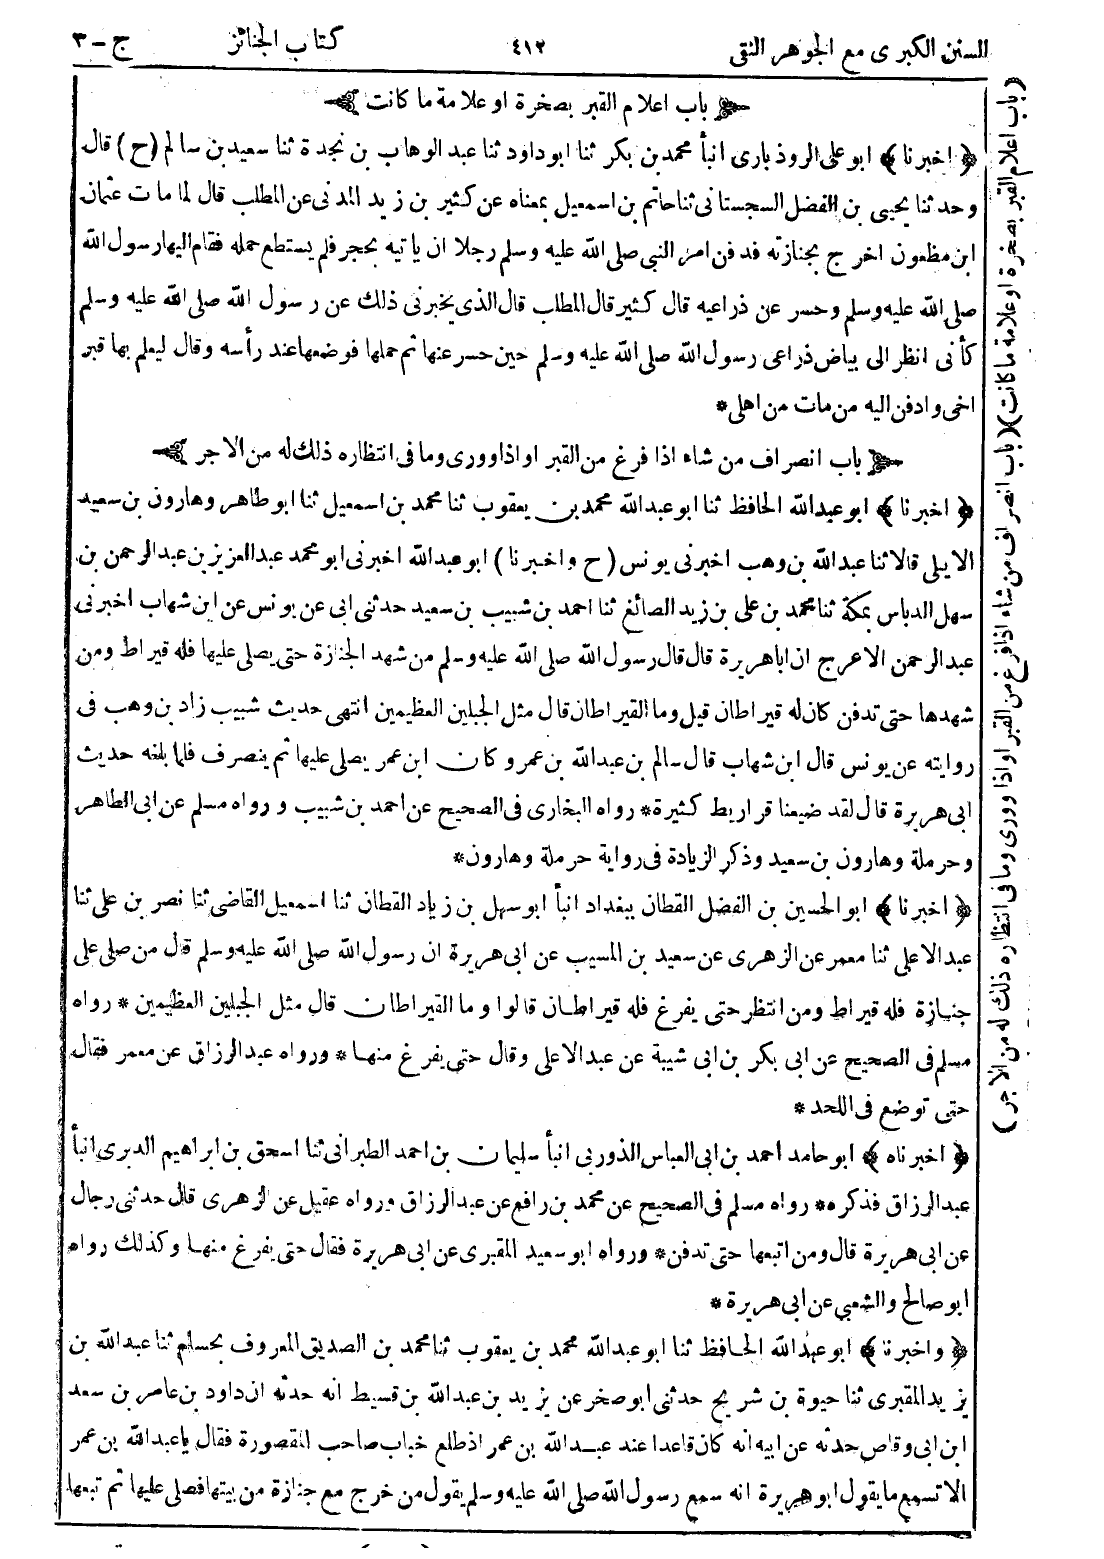 السنن الكبرى مع الجوهر النقى ٤١٢ كتاب الجنائز ج-٣
باب اعلام القبر بصخرة او علامة ما كانت
﴿ اخبرنا ﴾ ابو على الروذبارى انبأ محمد بن بكر ثنا ابو داود ثنا عبد الوهاب بن نجدة ثنا سعيد بن سالم (ح) قال
وحدثنا يحيى بن الفضل السجستانى ثنا حاتم بن اسمعيل بمعناه عن كثير بن زيد المدنى عن المطلب قال لما مات عثمان
ابن مظعون اخرج بجنازته فدفن امر النبى صلى الله عليه وسلم رجلا ان ياتيه بحجر فلم يستطع حمله فقام اليها رسول الله
صلى الله عليه وسلم وحسر عن ذراعيه قال كثير قال المطلب قال الذى يخبرنى ذلك عن رسول الله صلى الله عليه وسلم
كأنى انظر الى بياض ذراعى رسول الله صلى الله عليه وسلم حين حسر عنها ثم حملها فوضعها عند رأسه وقال ليعلم بها قبر
اخى وادفن اليه من مات من اهلى*
باب انصراف من شاء اذا فرغ من القبر او اذا وورى وما فى انتظاره ذلك له من الاجر
﴿ اخبرنا ﴾ ابو عبد الله الحافظ ثنا ابو عبد الله محمد بن يعقوب ثنا محمد بن اسمعيل ثنا ابو طاهر وهارون بن سعيد
الايلى قالا ثنا عبد الله بن وهب اخبرنى يونس (ح واخبرنا) ابو عبد الله اخبرنى ابو محمد عبد العزيز بن عبد الرحمن بن
سهل الدباس بمكة ثنا محمد بن على بن زيد الصائغ ثنا احمد بن شبيب بن سعيد حدثنى ابى عن يونس عن ابن شهاب اخبرنى
عبد الرحمن الاعرج ان ابا هريرة قال قال رسول الله صلى الله عليه وسلم من شهد الجنازة حتى يصلى عليها فله قيراط ومن
شهدها حتى تدفن كان له قيراطان قيل وما القيراطان قال مثل الجبلين العظيمين انتهى حديث شبيب زاد بن وهب فى
روايته عن يونس قال ابن شهاب قال سالم بن عبد الله بن عمر وكان ابن عمر يصلى عليها ثم ينصرف فلما بلغه حديث
ابى هريرة قال لقد ضيعنا قراريط كثيرة* رواه البخارى فى الصحيح عن احمد بن شبيب ورواه مسلم عن ابى الطاهر
وحرملة وهارون بن سعيد وذكر الزيادة فى رواية حرملة وهارون*
﴿ اخبرنا ﴾ ابو الحسين بن الفضل القطان ببغداد انبأ ابو سهل بن زياد القطان ثنا اسمعيل القاضى ثنا نصر بن على ثنا
عبد الاعلى ثنا معمر عن الزهرى عن سعيد بن المسيب عن ابى هريرة ان رسول الله صلى الله عليه وسلم قال من صلى على
جنازة فله قيراط ومن انتظر حتى يفرغ فله قيراطان قالوا وما القيراطان قال مثل الجبلين العظيمين* رواه
مسلم فى الصحيح عن ابى بكر بن ابى شيبة عن عبد الاعلى وقال حتى يفرغ منها* ورواه عبد الرزاق عن معمر فقال
حتى توضع فى اللحد*
﴿ اخبرناه ﴾ ابو حامد احمد بن ابى العباس الذوربى انبأ سليمان بن احمد الطبرانى ثنا اسحق بن ابراهيم الدبرى انبأ
عبد الرزاق فذكره* رواه مسلم فى الصحيح عن محمد بن رافع عن عبد الرزاق ورواه عقيل عن الزهرى قال حدثنى رجال
عن ابى هريرة قال ومن اتبعها حتى تدفن* ورواه ابو سعيد المقبرى عن ابى هريرة فقال حتى يفرغ منها وكذلك رواه
ابو صالح والشعبي عن ابى هريرة*
﴿ واخبرنا ﴾ ابو عبد الله الحافظ ثنا ابو عبد الله محمد بن يعقوب ثنا محمد بن الصديق المعروف بحسام ثنا عبد الله بن
يزيد المقبرى ثنا حيوة بن شريح حدثنى ابو صخر عن يزيد بن عبد الله بن قسيط انه حدثه ان داود بن عامر بن سعد
ابن ابى وقاص حدثه عن ابيه انه كان قاعدا عند عبد الله بن عمر اذ طلع خباب صاحب المقصورة فقال يا عبد الله بن عمر
الا تسمع ما يقول ابو هريرة انه سمع رسول الله صلى الله عليه وسلم يقول من خرج مع جنازة من بيتها فصلى عليها ثم تبعها
(باب اعلام القبر بصخرة او علامة ما كانت) (باب انصراف من شاء اذا فرغ من القبر او اذا وورى وما فى انتظاره ذلك له من الاجر)